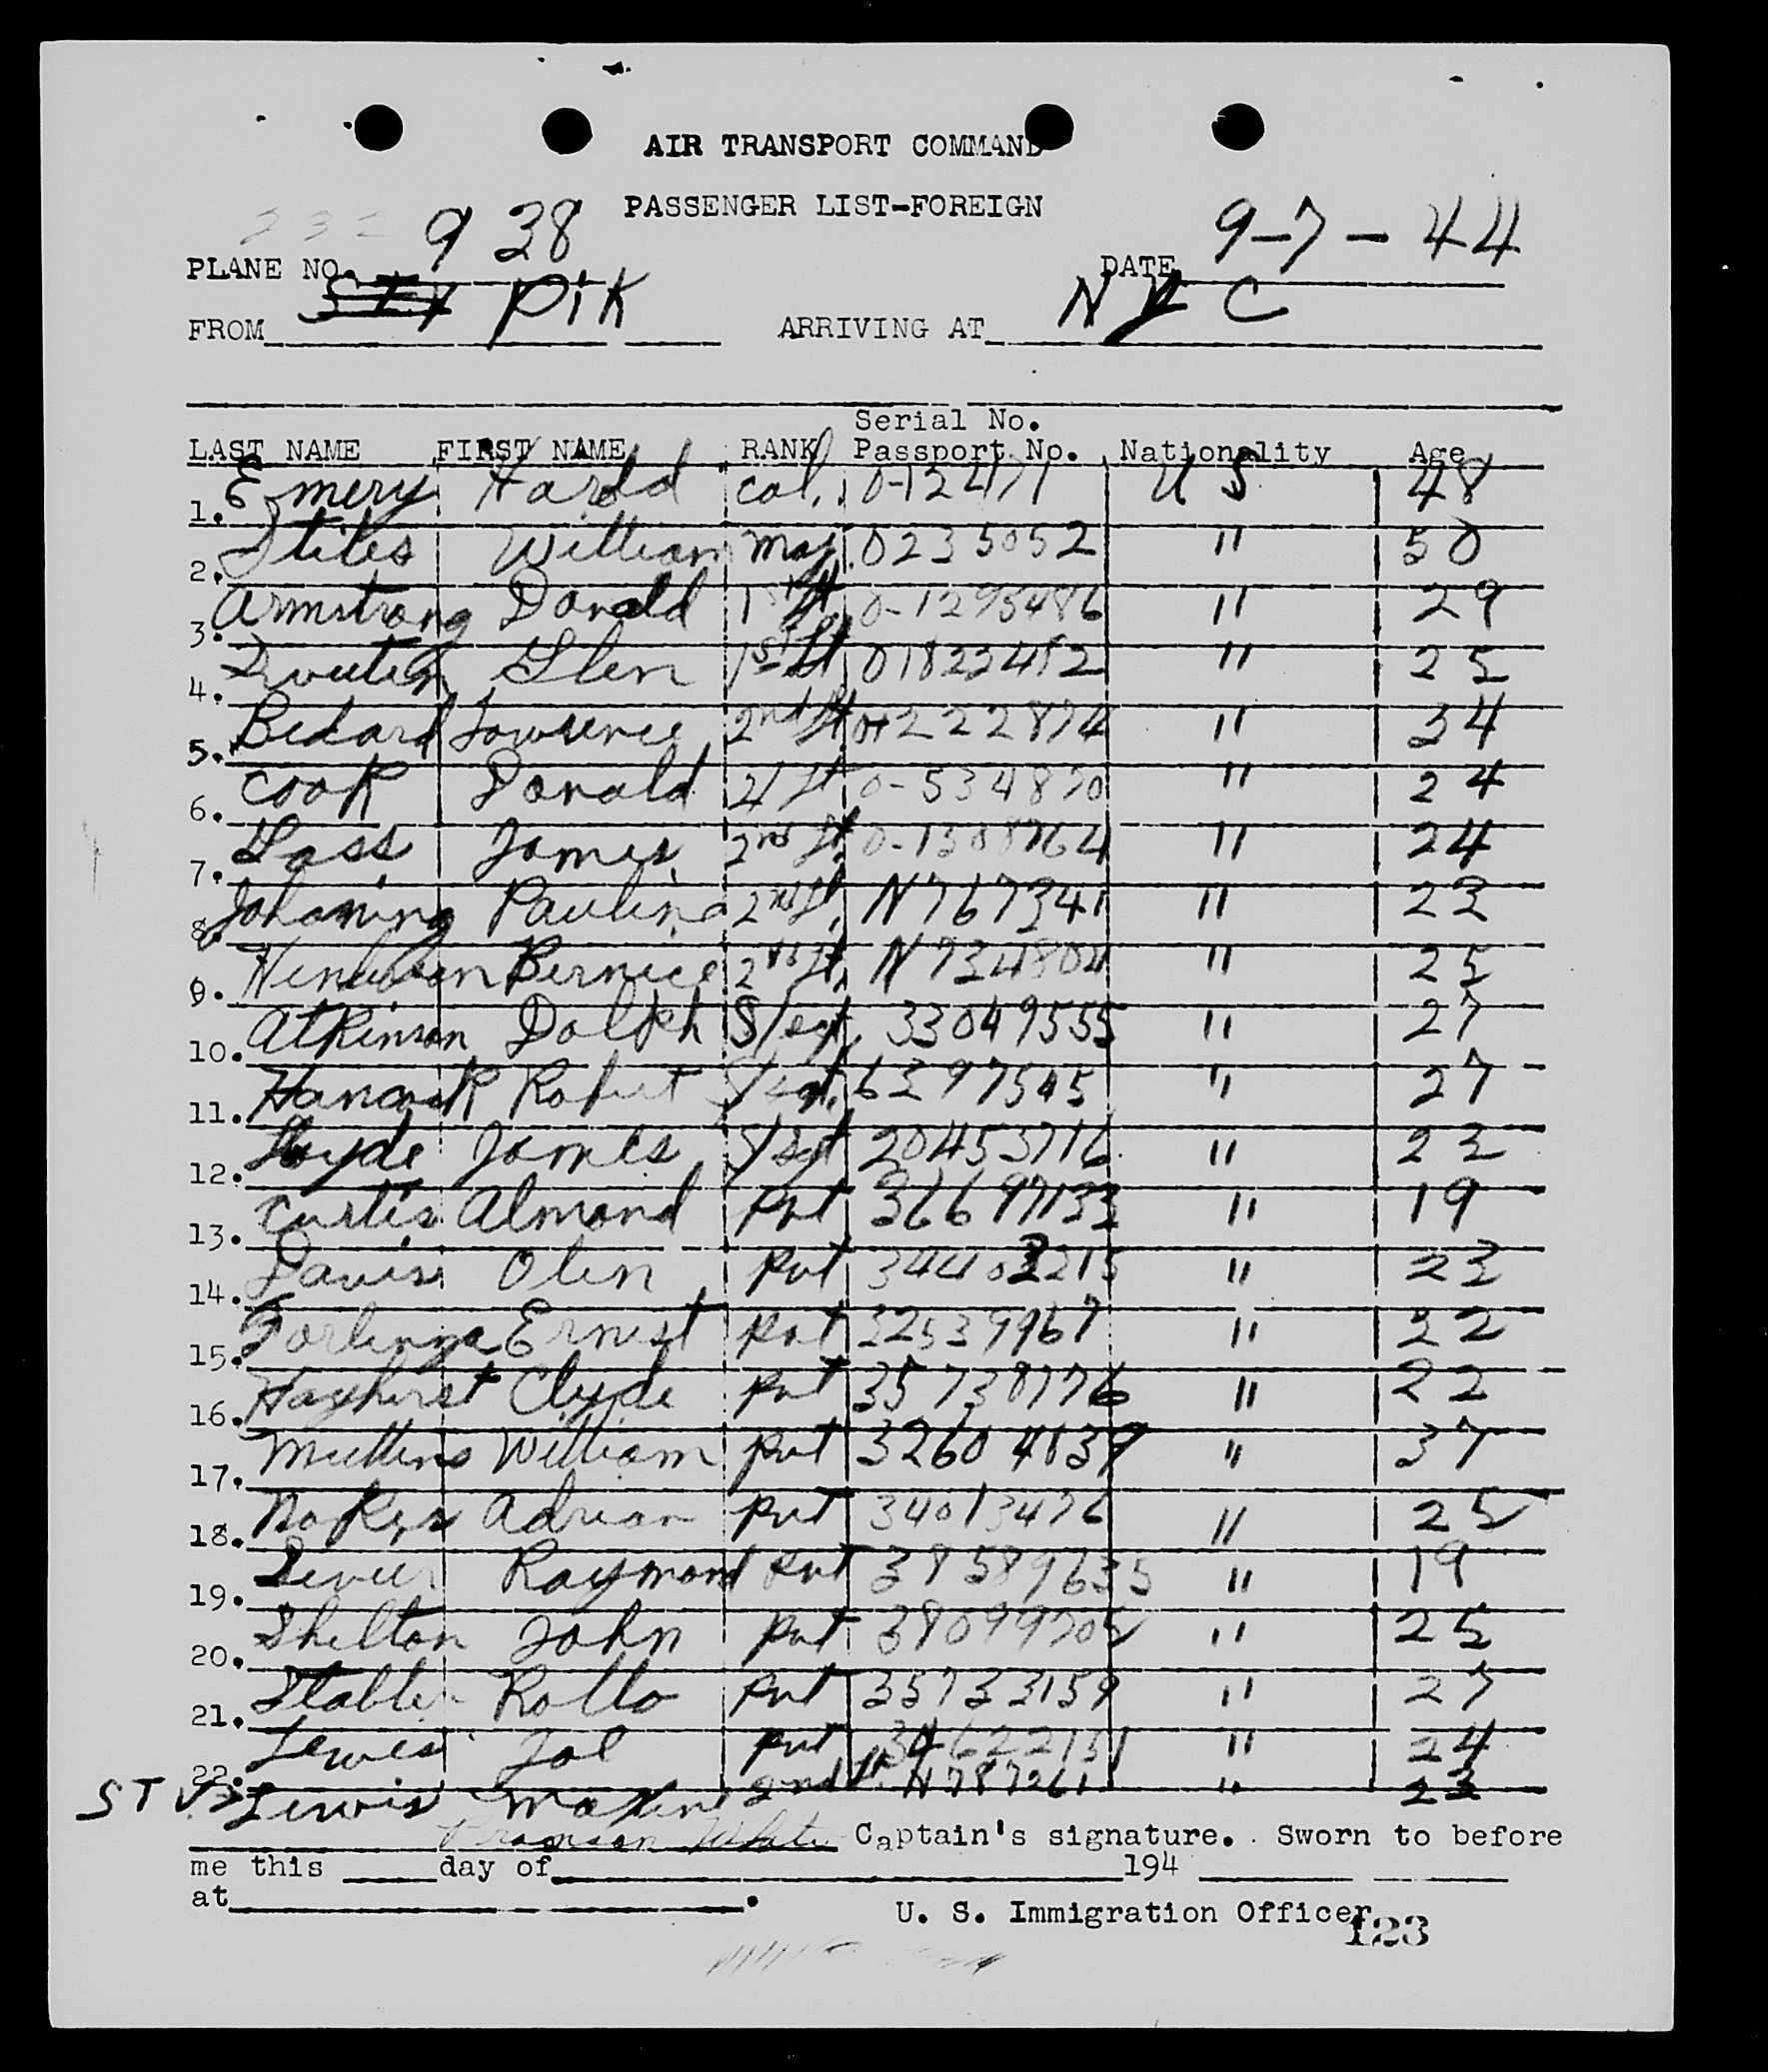 AIR TRANSPORT COMMAND
PASSENGER LIST-FOREIGN
232 938 9-7-44
PLANE NO. DATE
FROM PiK ARRIVING AT N Y C
Serial No.
LAST NAME FIRST NAME RANK Passport No. Nationality Age
1. Emery Harold Col. 0-12471 U S 48
2. Stiles William Maj. 0235052 " 50
3. Armstrong Donald 1st Lt. 0-1295486 " 29
4. Glen 1st Lt 01823482 " 25
5. Bedard Lawrence 2nd Lt 222874 " 34
6. Cook Donald 2/Lt 0-534870 " 24
7. James 2nd Lt. 0-1308764 " 24
8. Johanning Paulina 2nd Lt. N767341 " 23
9. Henderson Bernice 2nd Lt. N734804 " 25
10. Atkinson Dolph S/sgt. 33049555 " 27
11. Hancock Robert S/sgt. 6397545 " 27
12. James S/sgt 20453716 " 23
13. Curtis Almond Pvt 36697133 " 19
14. Davis Olen Pvt 34403215 " 23
15. Ernest Pvt 32539967 " 22
16. Hayhurst Clyde Pvt 35738776 " 22
17. Mullins William Pvt 32604837 " 37
18. Nokes Adrian Pvt 34013476 " 25
19. Raymond Pvt 38589635 " 19
20. Shelton John Pvt 38099705 " 25
21. Stabler Rollo Pvt 35733159 " 27
22. Lewis Pvt 34622151 " 24
STV> Lewis Maxine 2nd Lt. N787261 " 23
White Captain's signature. Sworn to before
me this day of 194
at .
U. S. Immigration Officer
123